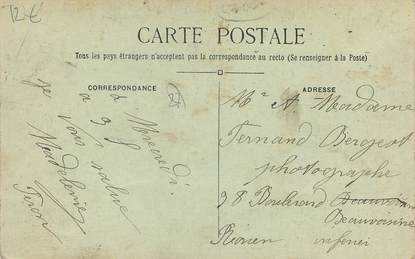 12 €
CARTE POSTALE
Tous les pays étrangers n'acceptent pas la correspondance au recto (Se renseigner à la Poste)
CORRESPONDANCE
à Mercredi
a 9 h
je vous salue
Madeleine
ADRESSE
Mr et Madame
Fernand Bergeot
photographe
98 Boulevard Beauvoisin
Beauvoisine
Rouen inferieu